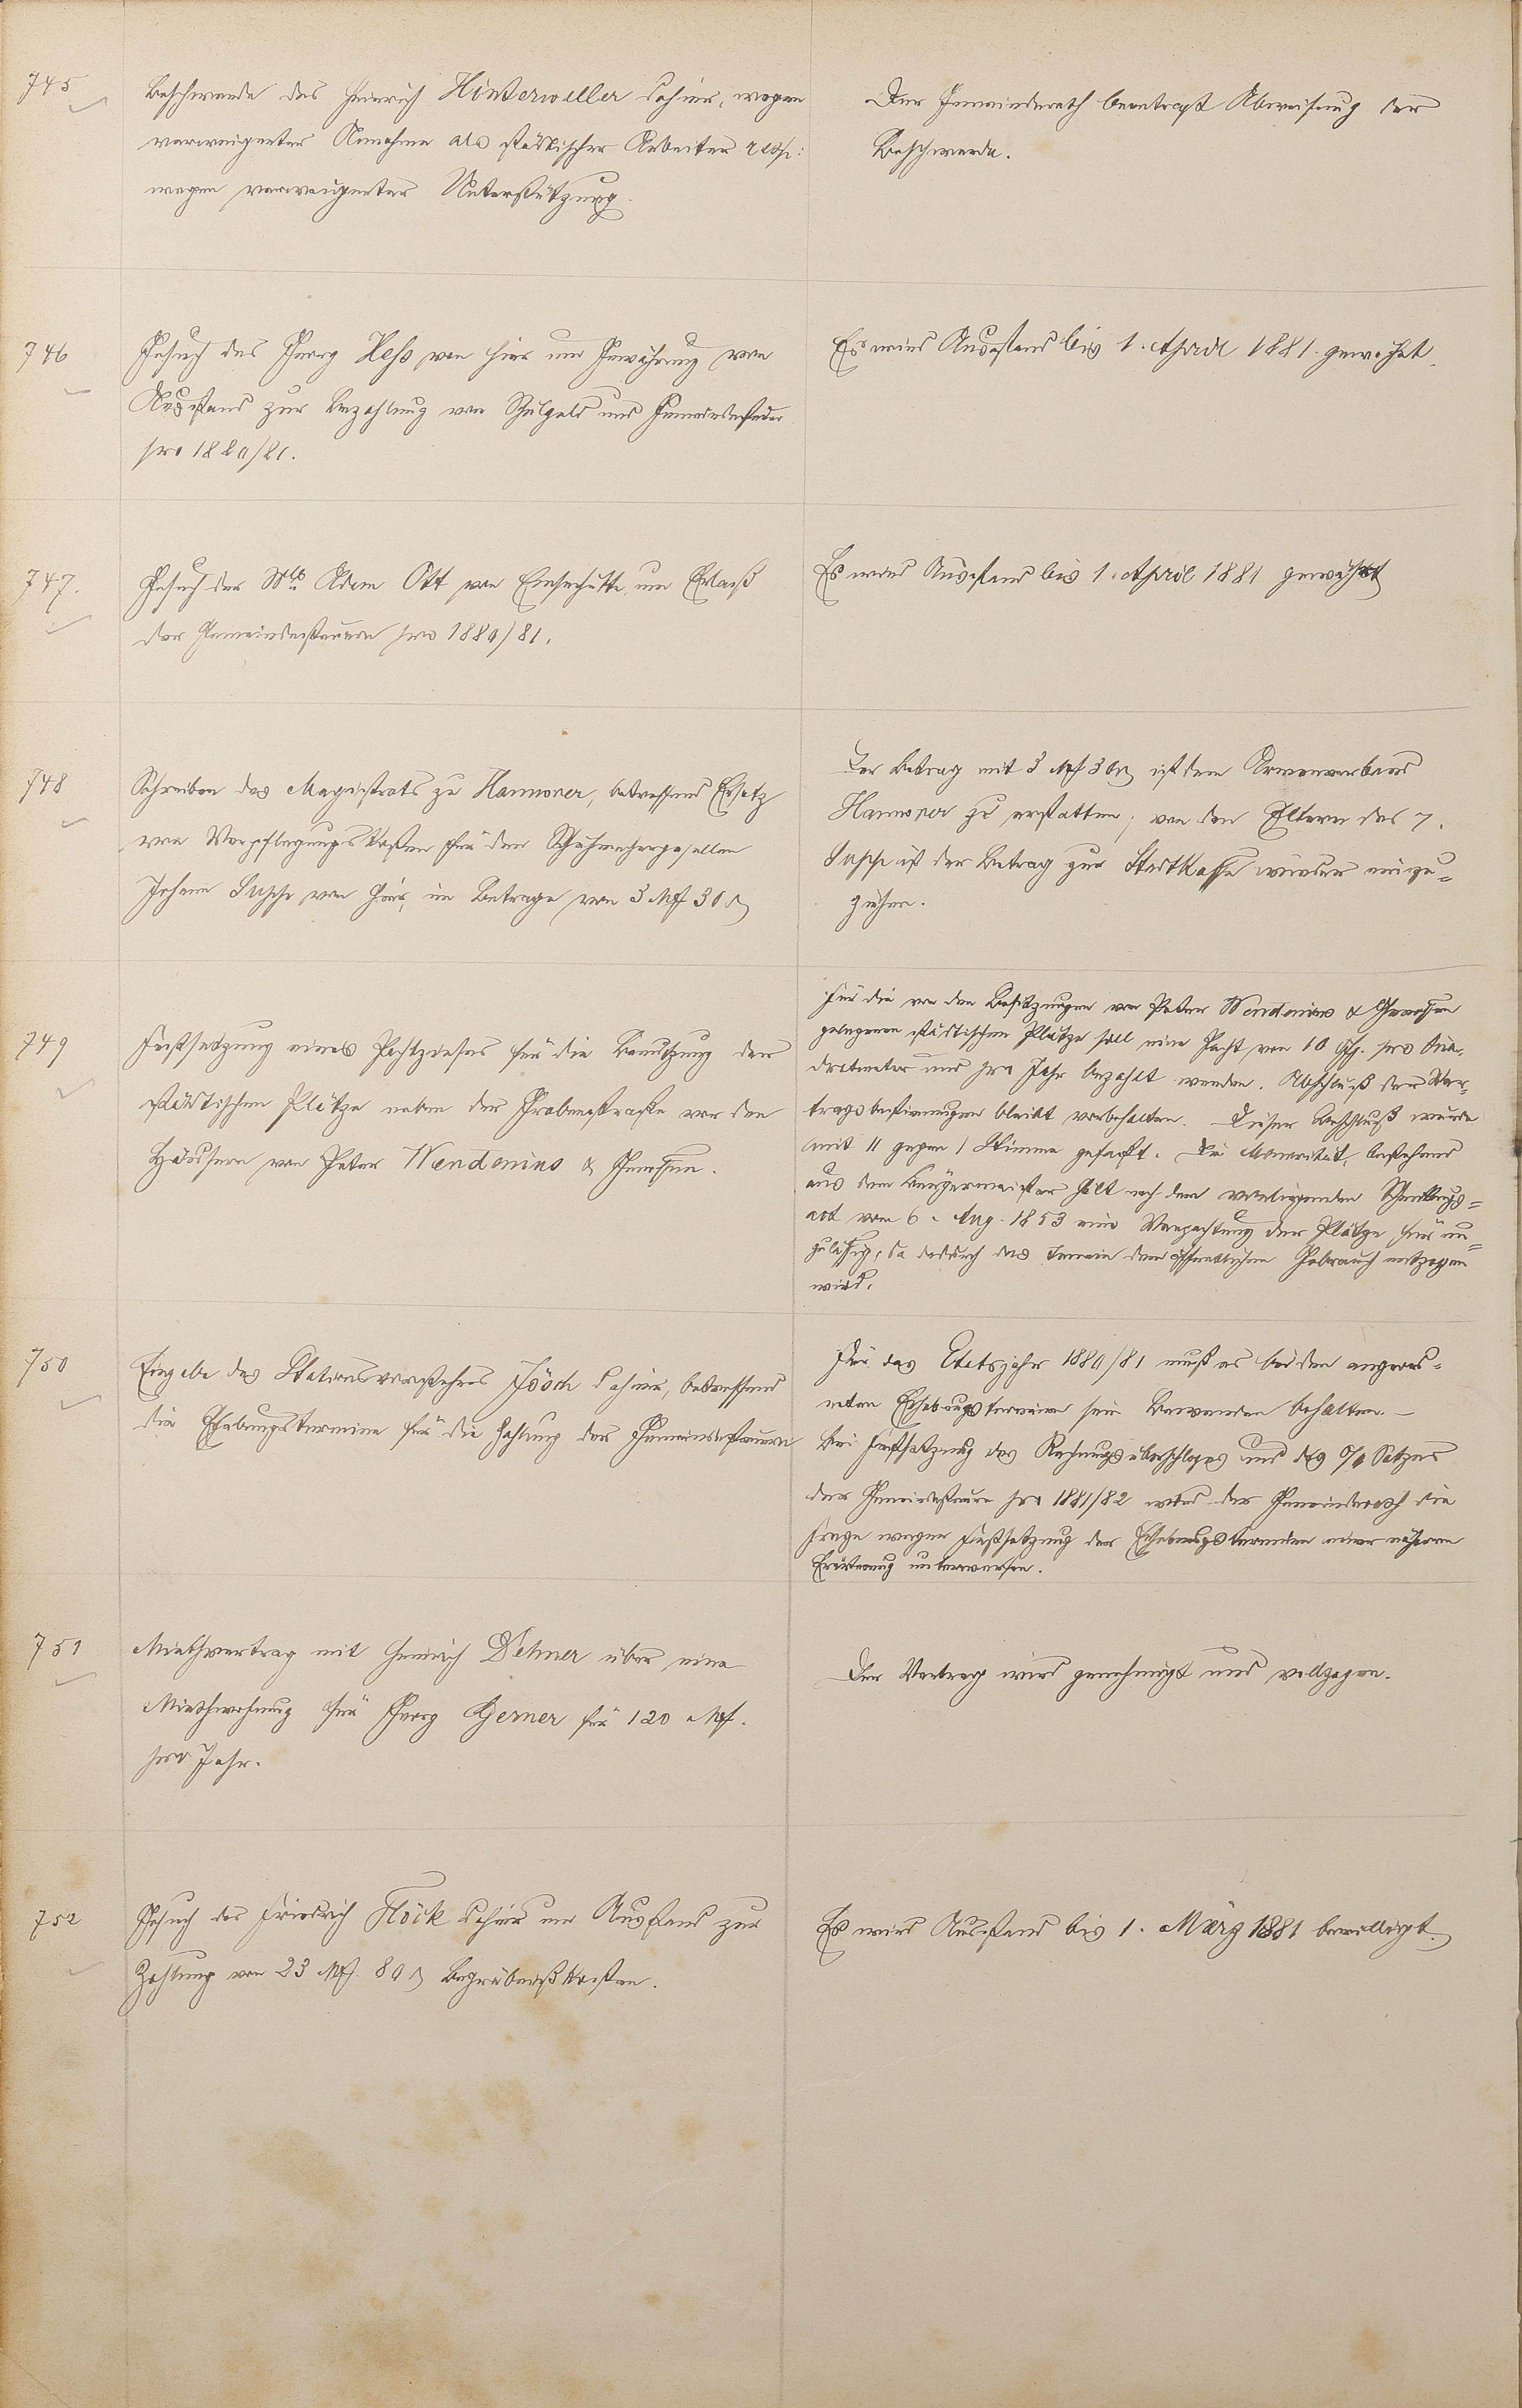 745
Beschwerde des Heinrich Hinterweller dahier, wegen
verweigerter Annahme als städtischer Arbeiter resp:
wegen verweigerter Unterstützung.
Der Gemeinderath beantragt Abweisung der
Beschwerde.
746
Gesuch des Georg Heß von hier um Gewährung von
Ausstand zur Bezahlung von Schulgeld und Gemeindesteuer
pro 1880/81.
Es wird Ausstand bis 1. April 1881 gewährt.
747.
Gesuch der Wb Adam Ott von um Erlaß
der Gemeindesteuern pro 1880/81.
Es wird Ausstand bis 1. April 1881 gewährt
748
Schreiben des Magistrats zu Hannover, betreffend Ersatz
von Verpflegungskosten für den Schuhmachergesellen
Johann Supp von hier, im Betrage von 3 Mk 30 ₰
Der Betrag mit 3 Mk 30 ₰ ist dem Armenverband
Hannover zu erstatten; von den Eltern des J.
Supp ist der Betrag zur Stadtkasse wieder einzu=
ziehen.
749
Festsetzung eines Pachtzinses für die Benutzung der
städtischen Plätze neben der Grabenstraße vor den
Häusern von Peter Wendonius & Genossen.
Für die vor den Besitzungen von Peter Wendonius & Genossen
gelegenen städtischen Plätze soll eine Pacht von 10 Pfg. pro Qua-
dratmeter und pro Jahr bezahlt werden. Abschluß der Ver-
tragsbestimmungen bleibt vorbehalten. Dieser Beschluß wurde
mit 11 gegen 1 Stimme gefaßt. Die Minorität, bestehend
aus dem Bürgermeister hält nach dem vorliegenden Schenkungs=
act vom 6. Aug. 1853 eine Verpachtung der Plätze für un=
zulässig, da dadurch das Terrain dem öffentlichen Gebrauch entzogen
wird.
750
Eingabe des Stationsvorstehers Jösch dahier, betreffend
die Erhebungstermine für die Zahlung der Gemeindesteuern
Für das Etatsjahr 1880/81 muß es bei den angeord=
neten Erhebungsterminen sein Bewenden behalten. —
Bei Festsetzung des Rechnungsüberschlages und des % Satzes
der Gemeindesteuer pro 1881/82 wird der Gemeinderath die
Frage wegen Festsetzung der Erhebungstermine einer näheren
Erörterung unterwerfen.
751
Miethvertrag mit Heinrich Dehner über eine
Miethwohnung für Georg Gerner für 120 Mk.
pro Jahr.
Der Vertrag wird genehmigt und vollzogen.
752
Gesuch des Friedrich Flöck dahier um Ausstand zur
Zahlung von 23 Mk. 80 ₰ Begräbnißkosten.
Es wird Ausstand bis 1. März 1881 bewilligt.